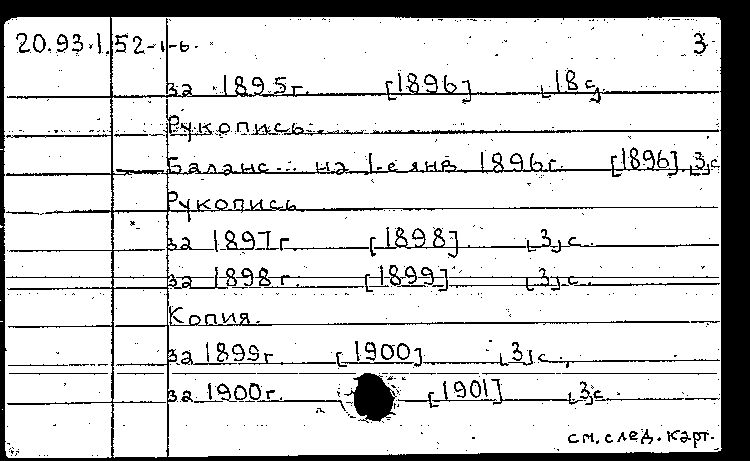 20.93.1.52-1-6. 3
за 1895г. [1896] [18]с.
Рукопись.
Баланс... на 1-е янв. 1896г. [1896]. [3]с
Рукопись
за 1897г. [1898] [3]с.
за 1898г. [1899] [3]с.
Копия.
за 1899г. [1900] [3]с.
за 1900г. [1901] [3]с.
см. след. карт.